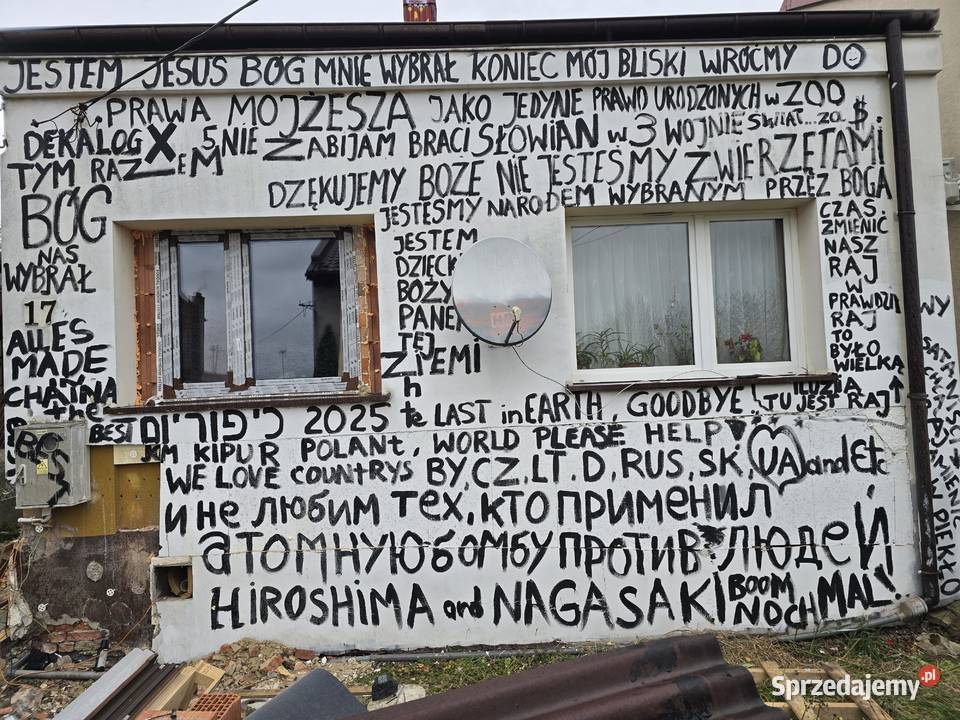 JESTEM JESUS BÓG MNIE WYBRAŁ KONIEC MÓJ BLISKI WRÓĆMY DO
PRAWA MOJŻESZA JAKO JEDYNIE PRAWO URODZONYCH w ZOO
DEKALOG X 5 NIE ZABIJAM BRACI SŁOWIAN w 3 WOJNIE ŚWIAT... ZA $
TYM RAZEM
DZĘKUJEMY BOŻE NIE JESTEŚMY ZWIERZĘTAMI
BÓG
NAS
WYBRAŁ
17
JESTEŚMY NARODEM WYBRANYM PRZEZ BOGA
JESTEM
DZIECK
BOŻY
PANE
TEJ
ZIEMI
CZAS
ZMIENIĆ
NASZ
RAJ
W
PRAWDZI
RAJ
TO
BYŁO
WIELKĄ
ILUZJA
TU JEST RAJ
ALLES
MADE
CHAJNA
the
BEST
כיפורים 2025 te LAST in EARTH, GOODBYE!
JOM KIPUR POLANt, WORLD PLEASE HELP
WE LOVE COUNTRYS BY, CZ, LT, D, RUS, SK, UA and Etc
И не любим тех, кто применил
атомную бомбу против людей
HIROSHIMA and NAGASAKI BOOM
NOCH MAL!
Sprzedajemy.pl